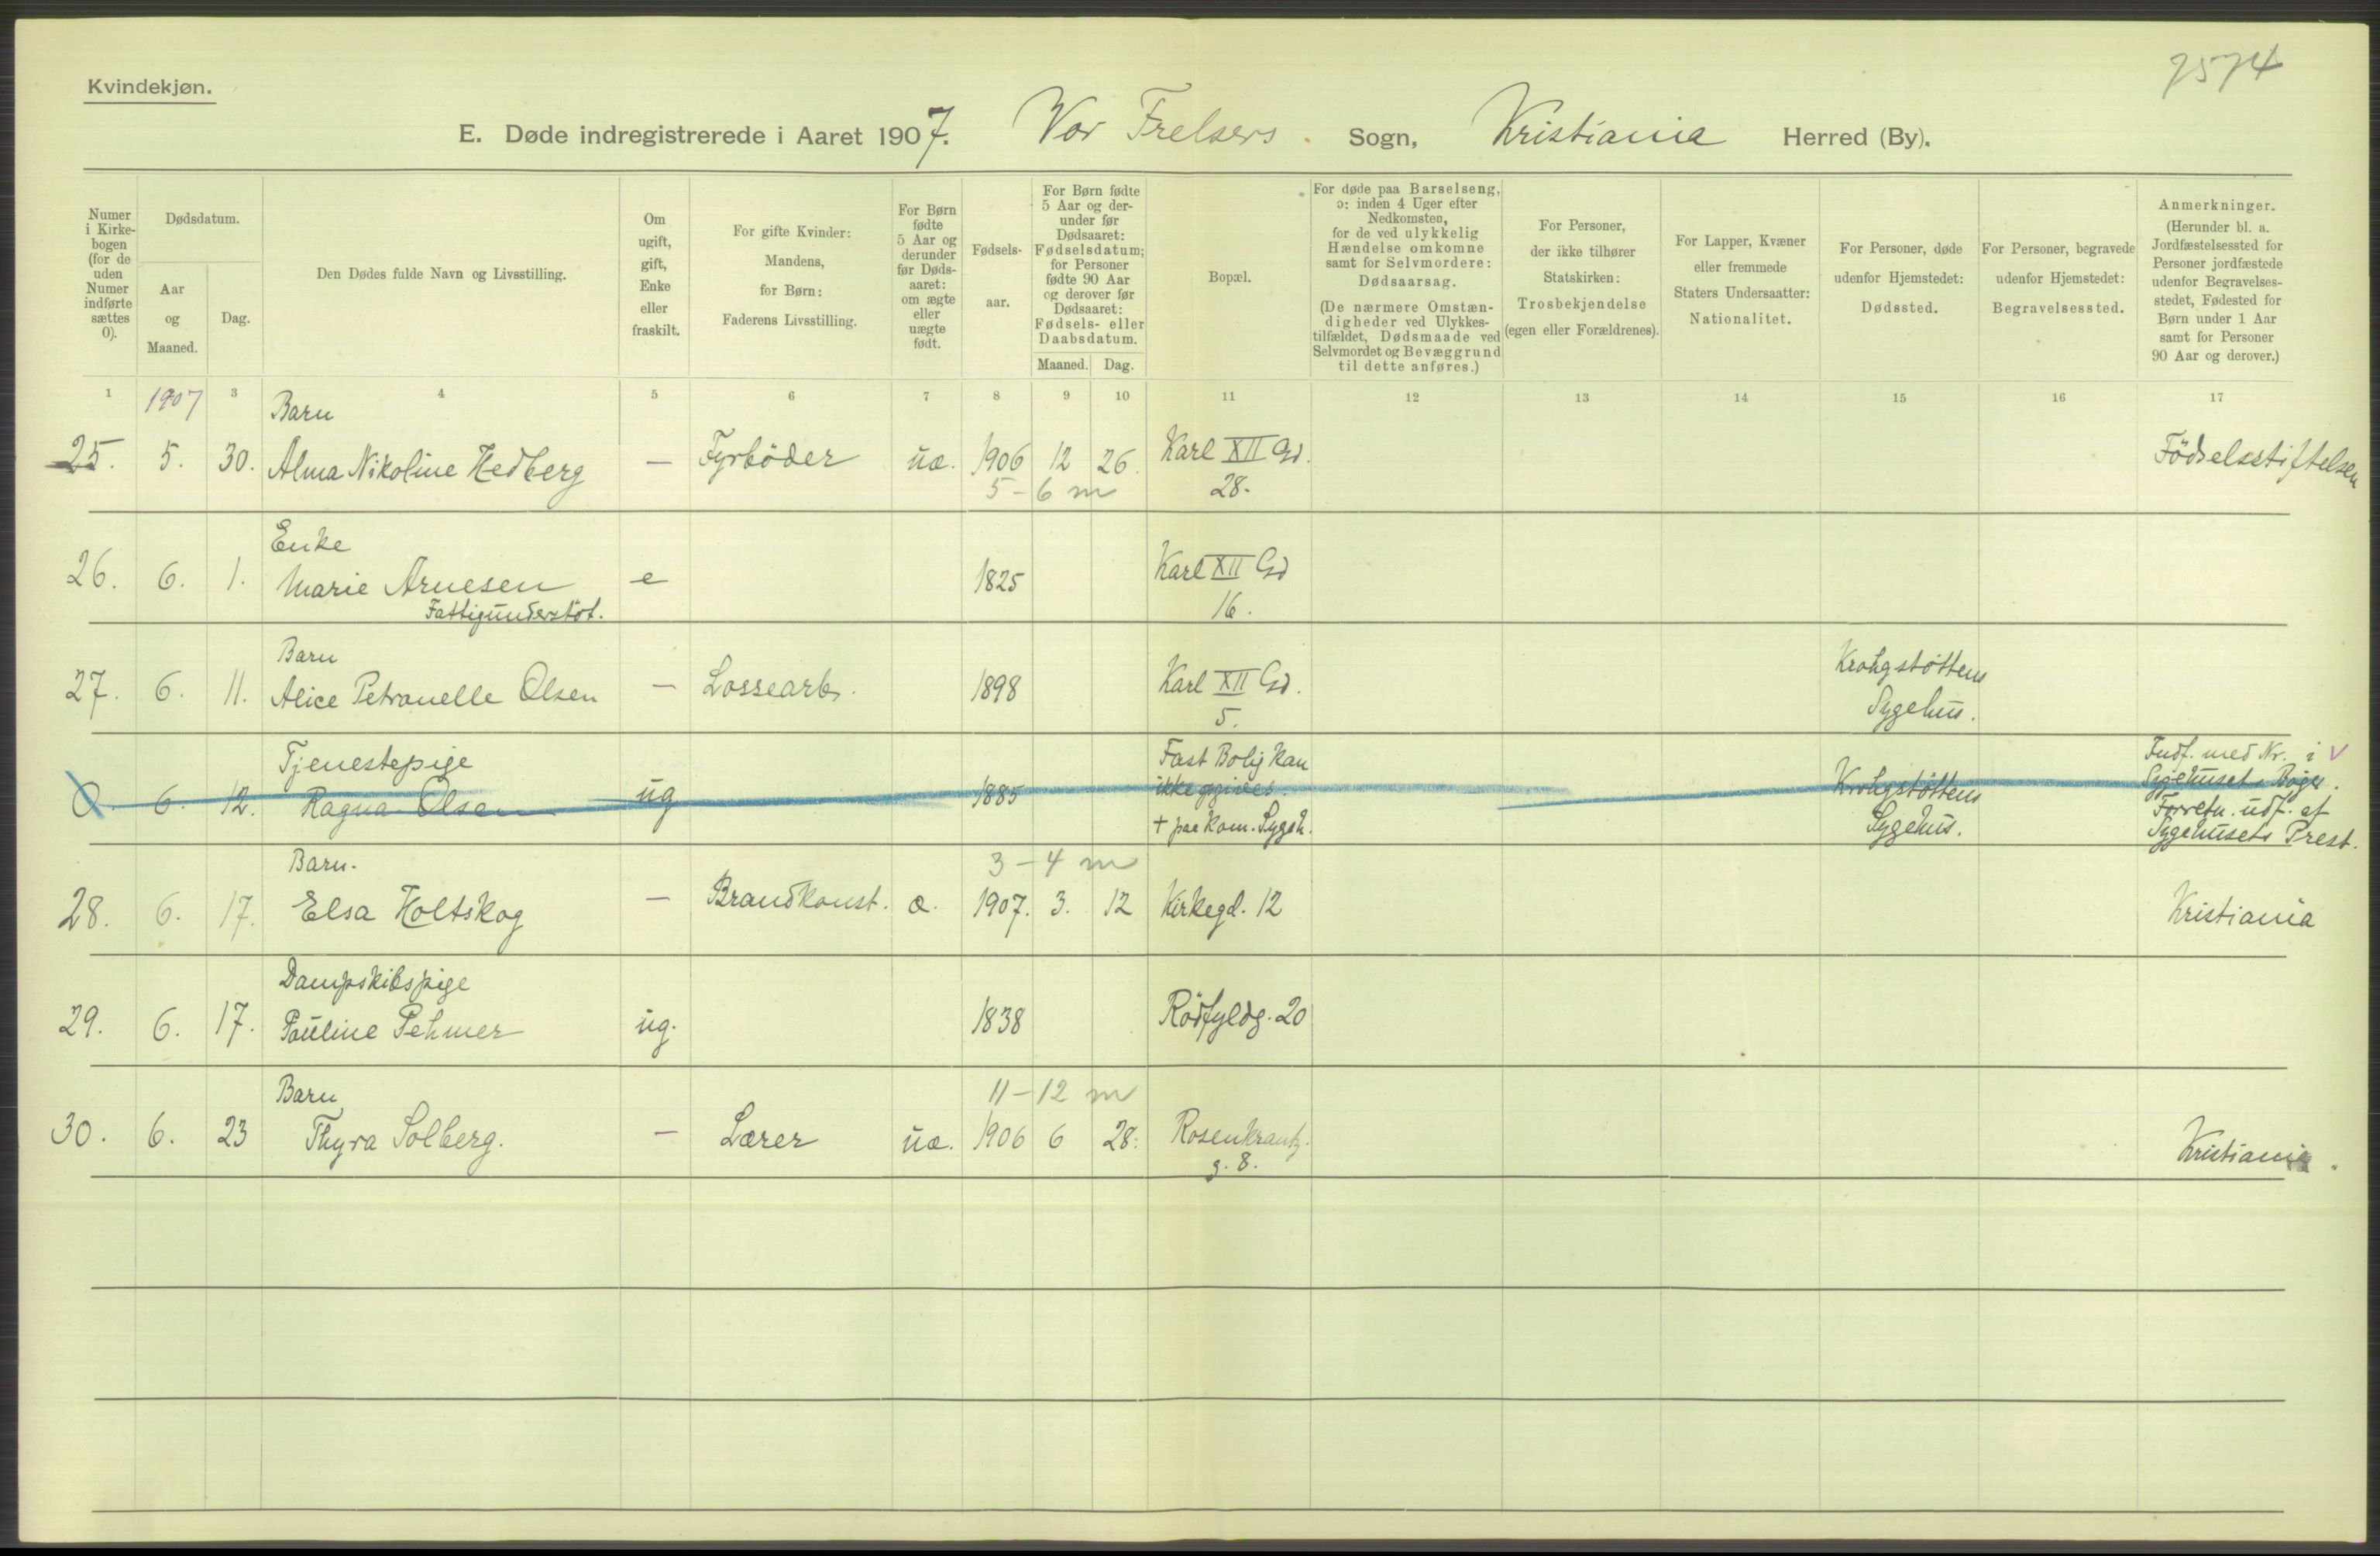 7574
Kvindekjøn.
E. Døde indregistrerede i Aaret 1907. Vor Frelsers. Sogn, Kristiania Herred (By).
Numer i Kirkebogen (for de uden Numer indførte sættes 0).
Dødsdatum.
Aar og Maaned.
Dag.
Den Dødes fulde Navn og Livsstilling.
Om ugift, gift, Enke eller fraskilt.
For gifte Kvinder: Mandens, for Børn: Faderens Livsstilling.
For Børn fødte 5 Aar og derunder før Dødsaaret: om ægte eller uægte født.
Fødselsaar.
For Børn fødte 5 Aar og derunder før Dødsaaret: Fødselsdatum; for Personer fødte 90 Aar og derover før Dødsaaret: Fødsels- eller Daabsdatum.
Maaned. Dag.
Bopæl.
For døde paa Barselseng, ɔ: inden 4 Uger efter Nedkomsten, for de ved ulykkelig Hændelse omkomne samt for Selvmordere: Dødsaarsag.
(De nærmere Omstændigheder ved Ulykkestilfældet, Dødsmaade ved Selvmordet og Bevæggrund til dette anføres.)
For Personer, der ikke tilhører Statskirken: Trosbekjendelse (egen eller Forældrenes).
For Lapper, Kvæner eller fremmede Staters Undersaatter: Nationalitet.
For Personer, døde udenfor Hjemstedet: Dødssted.
For Personer, begravede udenfor Hjemstedet: Begravelsessted.
Anmerkninger.
(Herunder bl. a. Jordfæstelsessted for Personer jordfæstede udenfor Begravelsesstedet, Fødested for Børn under 1 Aar samt for Personer 90 Aar og derover.)
1 1907 3 4 5 6 7 8 9 10 11 12 13 14 15 16 17
Barn
25. 5. 30. Alma Nikoline Hedberg — Fyrbøder uæ. 1906 12 26. Karl XII Gd. Fødselsstiftelsen
5-6 m 28.
Enke
26. 6. 1. Marie Arnesen e 1825 Karl XII Gd
Fattigunderstøt. 16.
Barn
27. 6. 11. Alice Petronelle Olsen — Lossearb. 1898 Karl XII Gd. Krohgstøttens
5. Sygehus.
Tjenestepige Fast Bolig kan Indf. med Nr. i V
0. 6. 12. Ragna Olsen ug 1885 ikke opgives. Krohgstøttens Sygehusets Bøger.
+ paa kom. Sygeh. Sygehus. Forretn. udf. af
Sygehusets Prest.
Barn. 3-4 m
28. 6. 17. Elsa Holtskog — Brandkonst. æ. 1907. 3. 12 Kirkegd. 12 Kristiania
Dampskibspige
29. 6. 17. Pauline Pehmer ug. 1838 Rødfyldg. 20
Barn 11-12 m
30. 6. 23 Thyra Solberg. — Lærer uæ. 1906 6 28. Rosenkrantz. Kristiania.
g. 8.